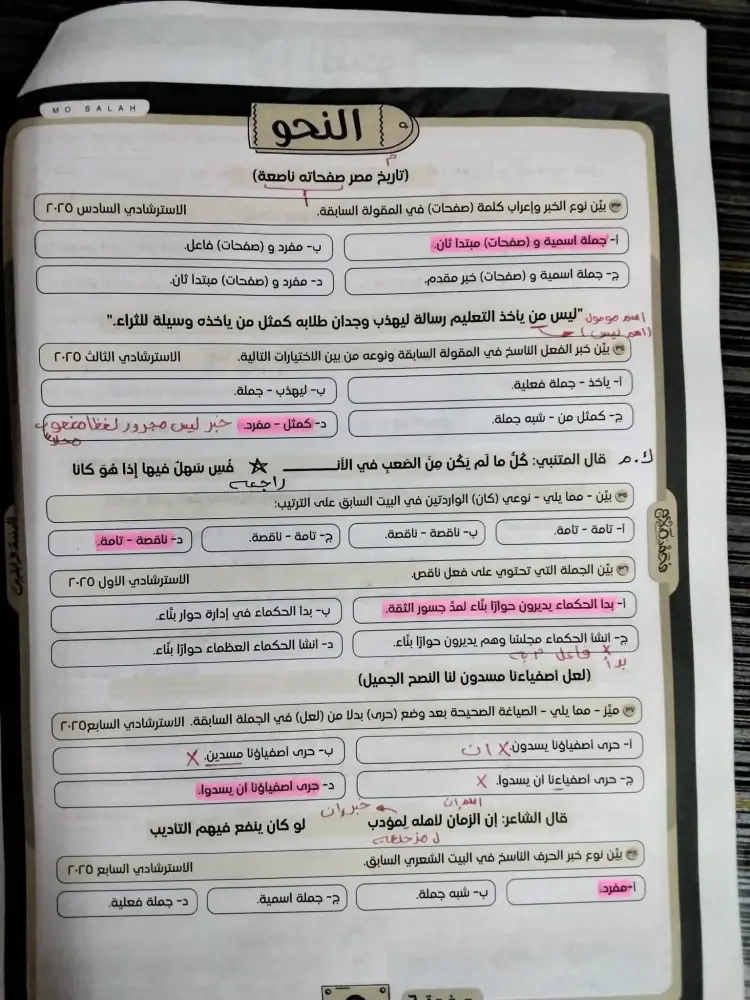 MO SALAH
النحو
(تاريخ مصر صفحاته ناصعة)
م
أ
٣٣ بيّن نوع الخبر وإعراب كلمة (صفحات) في المقولة السابقة. الاسترشادي السادس ٢٠٢٥
أ- جملة اسمية و (صفحات) مبتدا ثان. ب- مفرد و (صفحات) فاعل.
ج- جملة اسمية و (صفحات) خبر مقدم. د- مفرد و (صفحات) مبتدا ثان.
"ليس من ياخذ التعليم رسالة ليهذب وجدان طلابه كمثل من ياخذه وسيلة للثراء."
اسم موصول
(اسم ليس)
٣٤ بيّن خبر الفعل الناسخ في المقولة السابقة ونوعه من بين الاختيارات التالية. الاسترشادي الثالث ٢٠٢٥
أ- ياخذ - جملة فعلية. ب- ليهذب - جملة.
ج- كمثل من - شبه جملة. د- كمثل - مفرد. خبر ليس مجرور لفظا منصوب
محلا
ك.م قال المتنبي: كُلُّ ما لَم يَكُن مِنَ الصَعبِ في الأنــ ☆ فُسِ سَهلٌ فيها إذا هُوَ كانا
راجعه
٣٥ بيّن - مما يلي - نوعي (كان) الواردتين في البيت السابق على الترتيب:
أ- تامة - تامة. ب- ناقصة - ناقصة. ج- تامة - ناقصة. د- ناقصة - تامة.
٣٦ بيّن الجملة التي تحتوي على فعل ناقص. الاسترشادي الاول ٢٠٢٥
أ- بدا الحكماء يديرون حوارًا بنّاء لمدّ جسور الثقة. ب- بدا الحكماء في إدارة حوار بنّاء.
ج- انشا الحكماء مجلسًا وهم يديرون حوارًا بنّاء. د- انشا الحكماء العظماء حوارًا بنّاء.
x فاعل م به
بدأ
(لعل أصفياءنا مسدون لنا النصح الجميل)
٣٧ ميّز - مما يلي - الصياغة الصحيحة بعد وضع (حرى) بدلا من (لعل) في الجملة السابقة. الاسترشادي السابع ٢٠٢٥
أ- حرى اصفياؤنا يسدون. X ان ب- حرى اصفياؤنا مسدين. X
ج- حرى اصفياءنا ان يسدوا. X د- حرى اصفياؤنا ان يسدوا.
اسم ان خبر ان
قال الشاعر: إن الزمان لاهله لمؤدب لو كان ينفع فيهم التاديب
ل مزحلقه
٣٨ بيّن نوع خبر الحرف الناسخ في البيت الشعري السابق. الاسترشادي السابع ٢٠٢٥
أ-مفرد. ب- شبه جملة. ج- جملة اسمية. د- جملة فعلية.